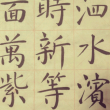 泗水濱
時新等
面萬紫